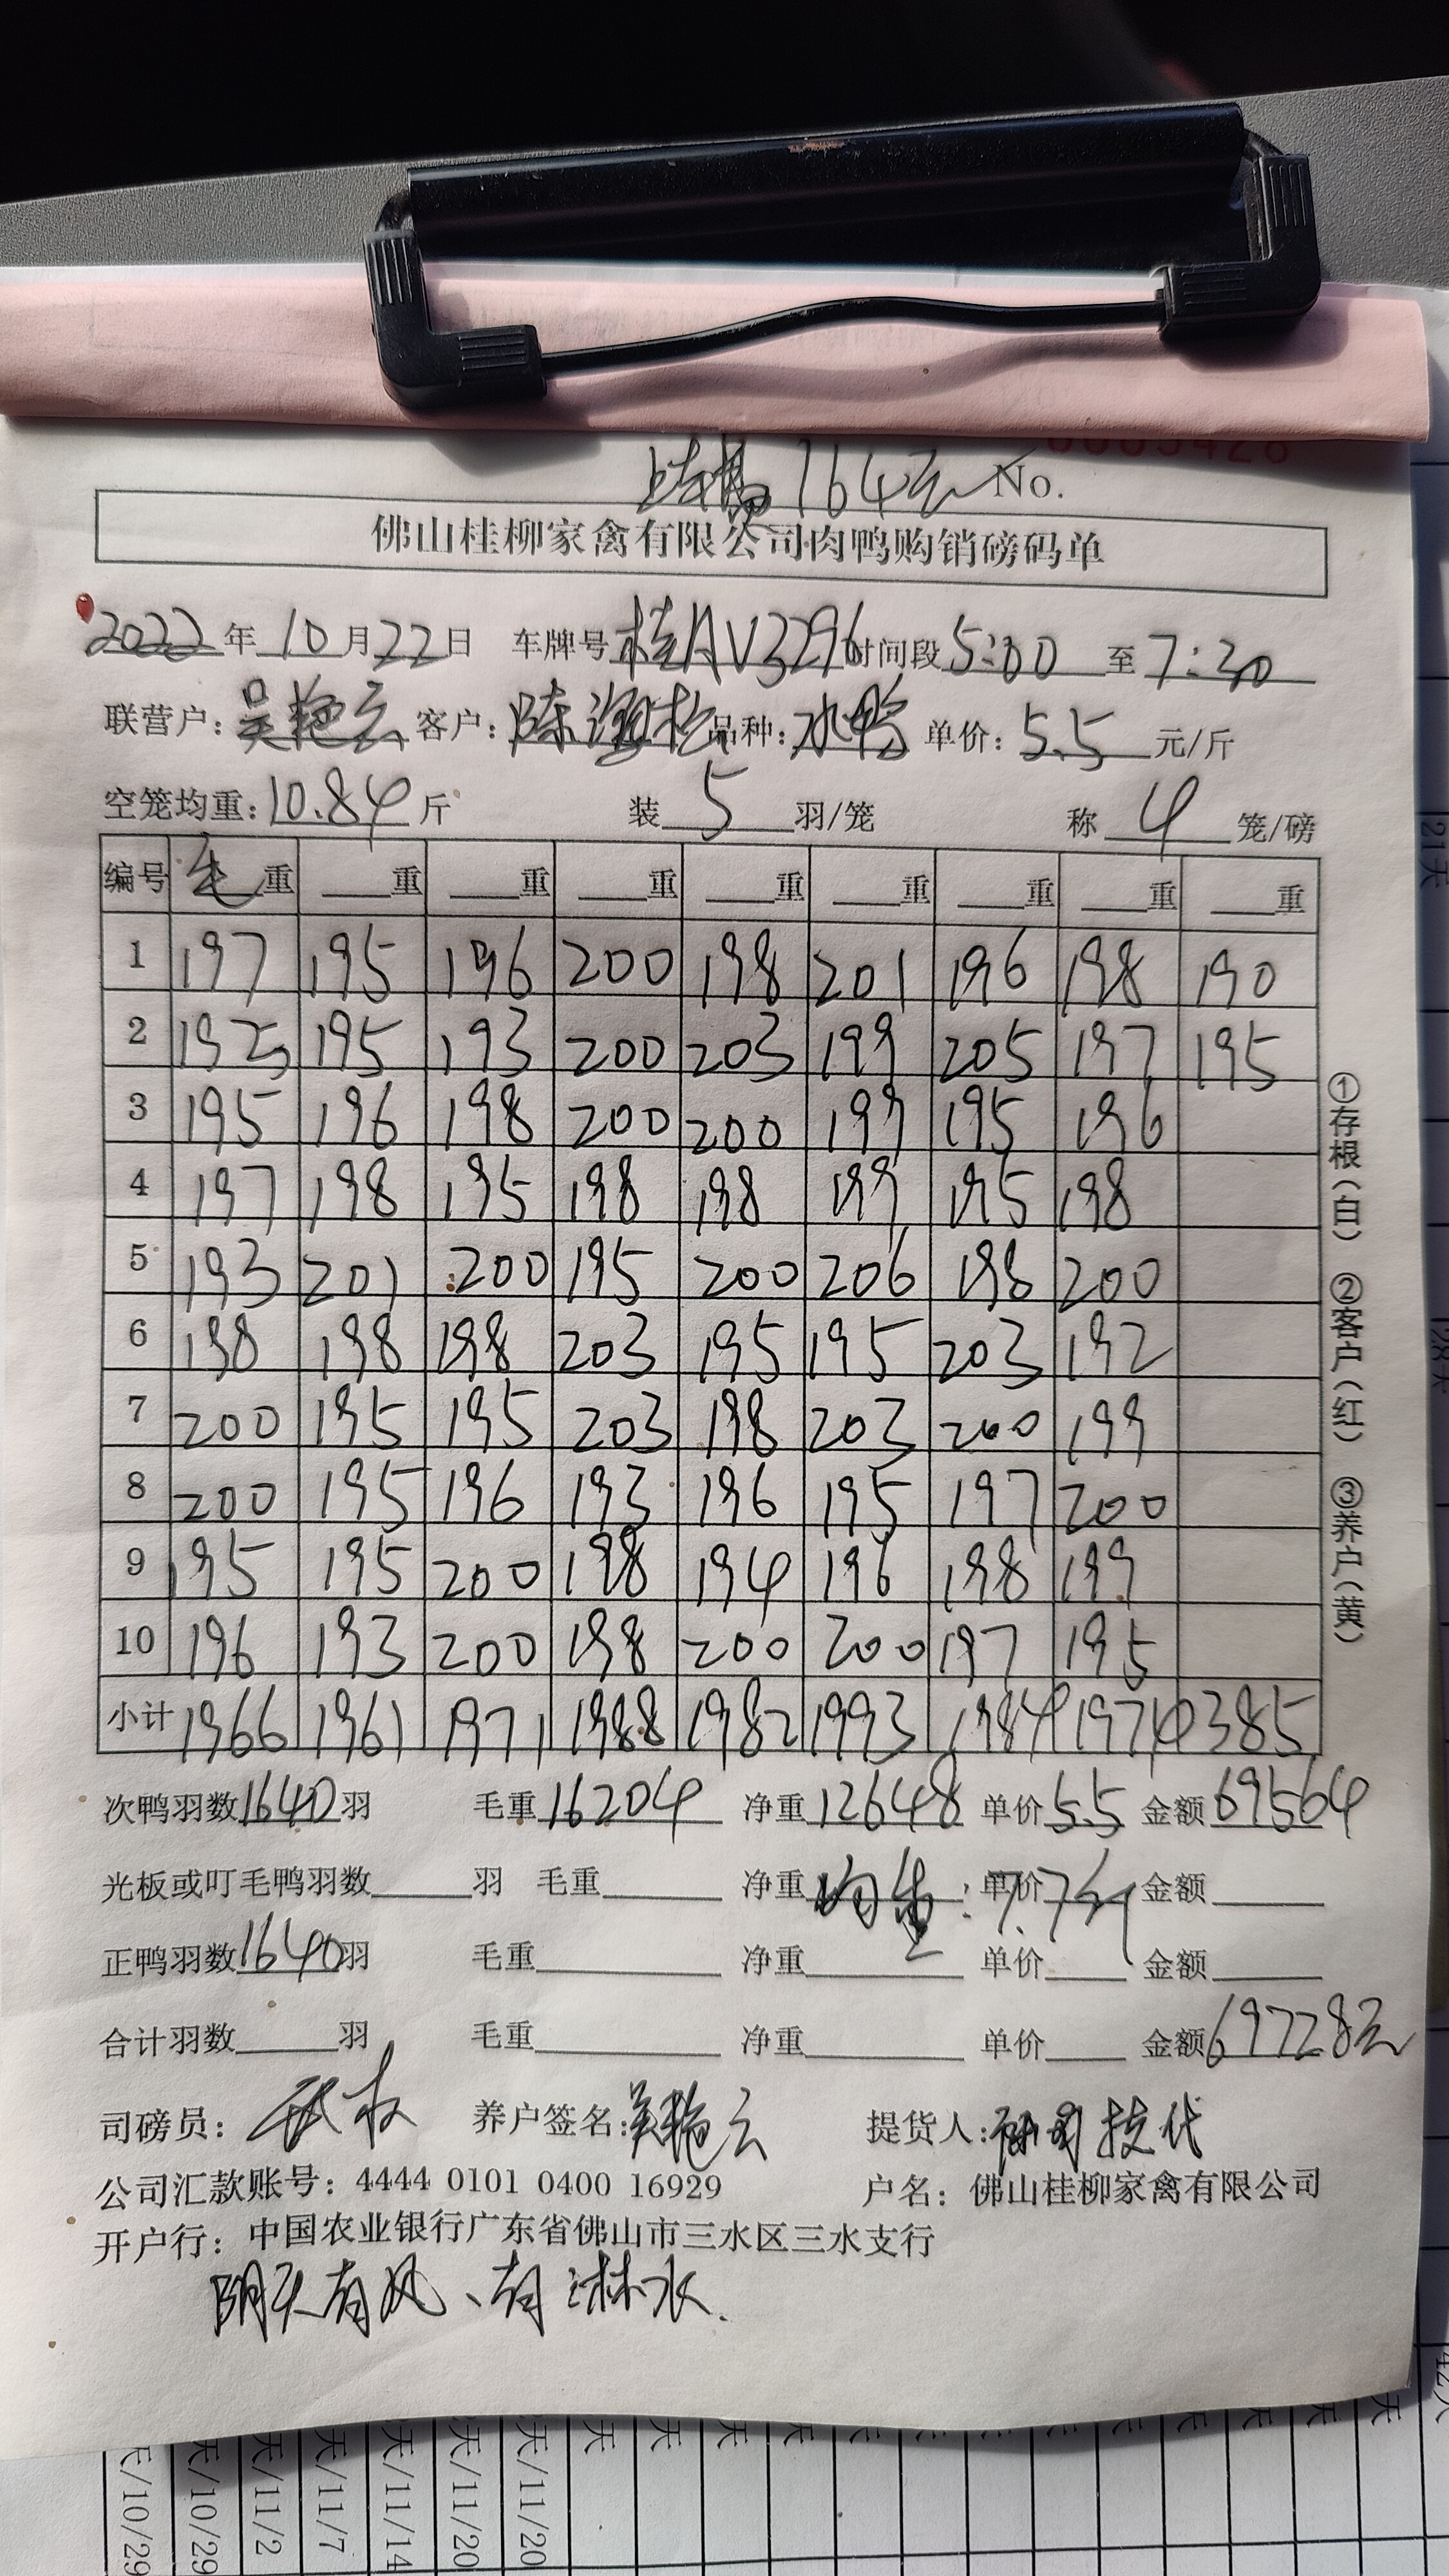 164元 No.
佛山桂柳家禽有限公司肉鸭购销磅码单
2022年10月22日 车牌号桂AV3296时间段5:00至7:30
联营户：吴艳云 客户：陈海松 品种：水鸭 单价：5.5元/斤
空笼均重：10.84斤 装5羽/笼 称4笼/磅
编号 毛重 重 重 重 重 重 重 重 重
1 197 195 196 200 198 201 196 198 190
2 195 195 193 200 203 199 205 197 195
3 195 196 198 200 200 199 195 196
4 197 198 195 198 198 199 195 198
5 193 201 200 195 200 206 198 200
6 198 198 198 203 195 195 203 192
7 200 195 195 203 198 203 200 199
8 200 195 196 193 196 195 197 200
9 195 195 200 198 194 196 198 199
10 196 193 200 198 200 200 197 195
小计 1966 1961 1971 1988 1982 1993 1984 1974 385
次鸭羽数1640羽 毛重16204 净重12648 单价5.5 金额69564
光板或叮毛鸭羽数 羽 毛重 净重 单价 金额
均重：7.7斤
正鸭羽数1640羽 毛重 净重 单价 金额
合计羽数 羽 毛重 净重 单价 金额69728元
司磅员： 养户签名：吴艳云 提货人：
公司汇款账号：4444 0101 0400 16929 户名：佛山桂柳家禽有限公司
开户行：中国农业银行广东省佛山市三水区三水支行
阴天有风、有淋水.
①存根（白） ②客户（红） ③养户（黄）
天/10/29
天/10/29
天/11/2
天/11/7
天/11/14
天/11/20
天/11/20